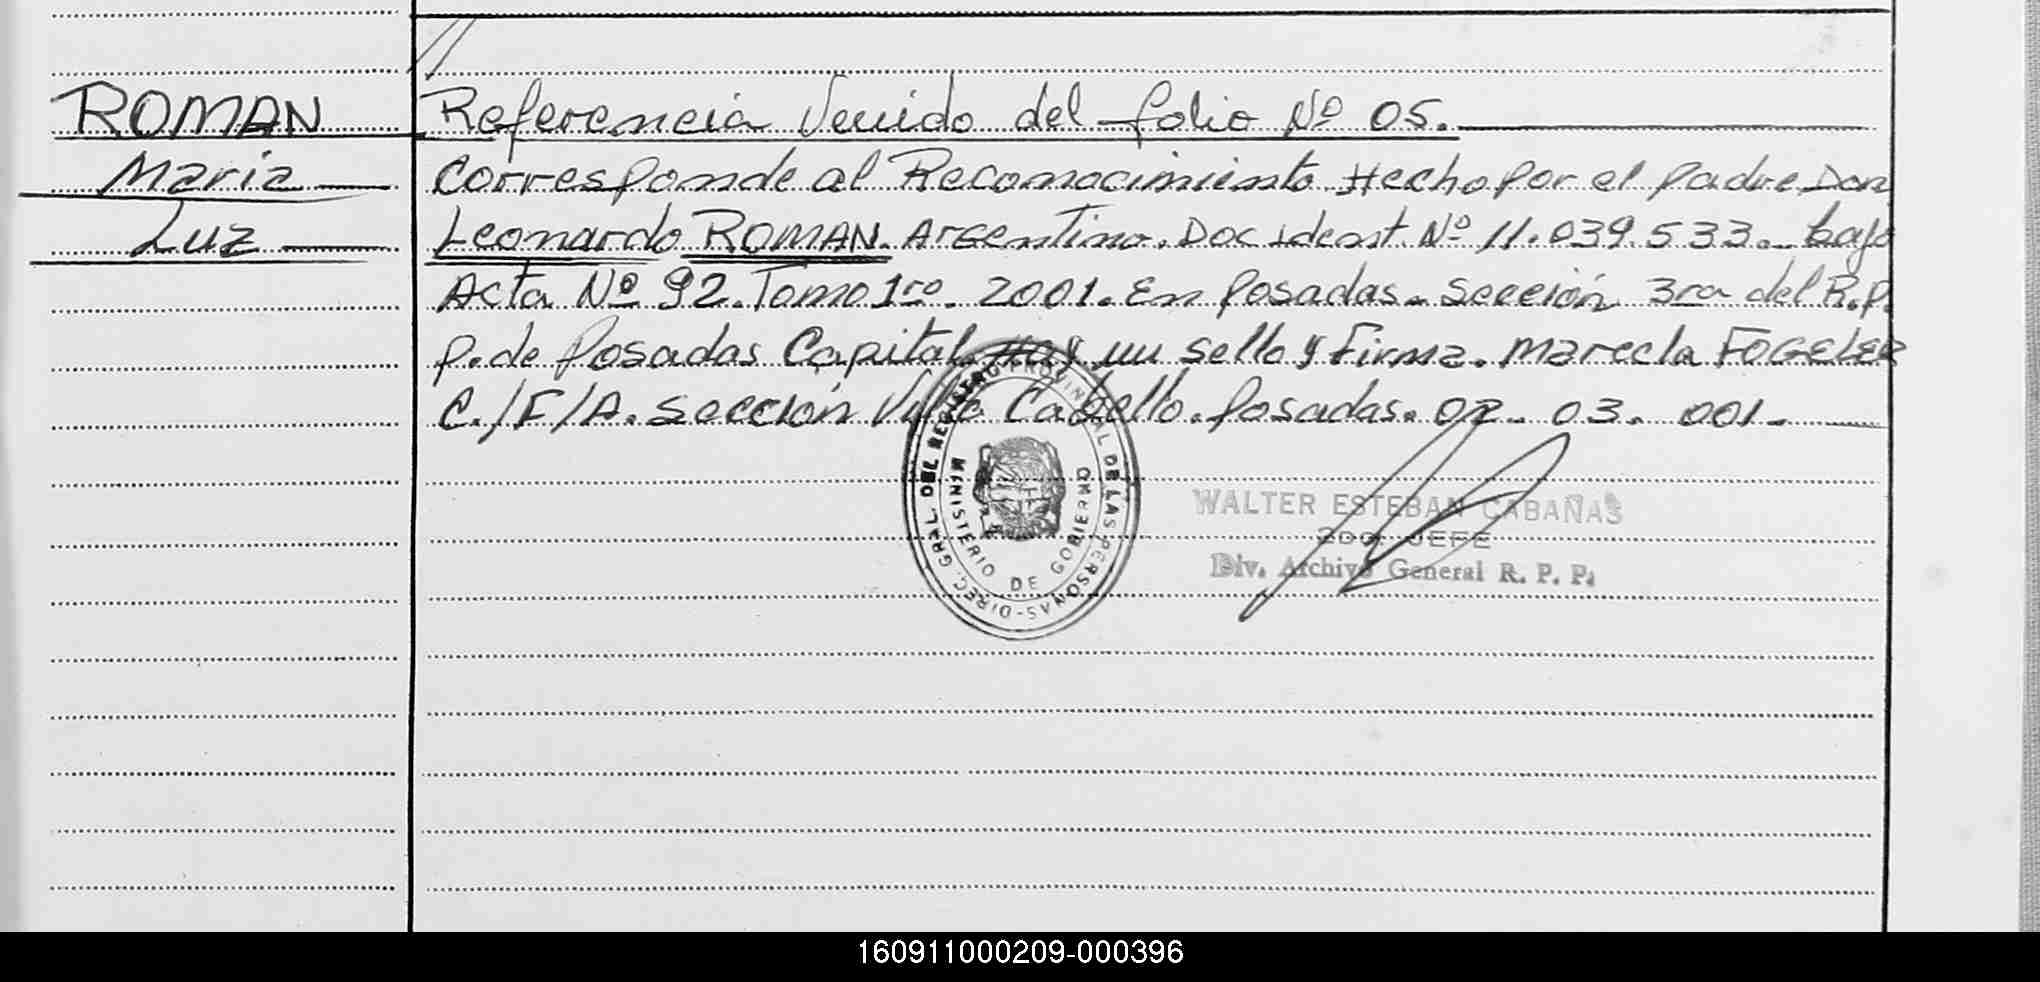 ROMAN
Maria
Luz
Referencia Venido del folio Nº 05.
Corresponde al Reconocimiento Hecho por el padre Don
Leonardo ROMAN. Argentino. Doc Ident. Nº 11.039.533. bajo
Acta Nº 92. Tomo 1ro. 2001. En Posadas. Sección 3ra del R.P.
P. de Posadas Capital. Hay un sello y Firma. Marecla FOGELER
C./F/A. Sección Villa Cabello. Posadas. 02. 03. 001.
DIREC. GRAL. DEL REGISTRO PROVINCIAL DE LAS PERSONAS
MINISTERIO DE GOBIERNO
WALTER ESTEBAN CABAÑAS
2DO. JEFE
Div. Archivo General R. P. P.
160911000209-000396